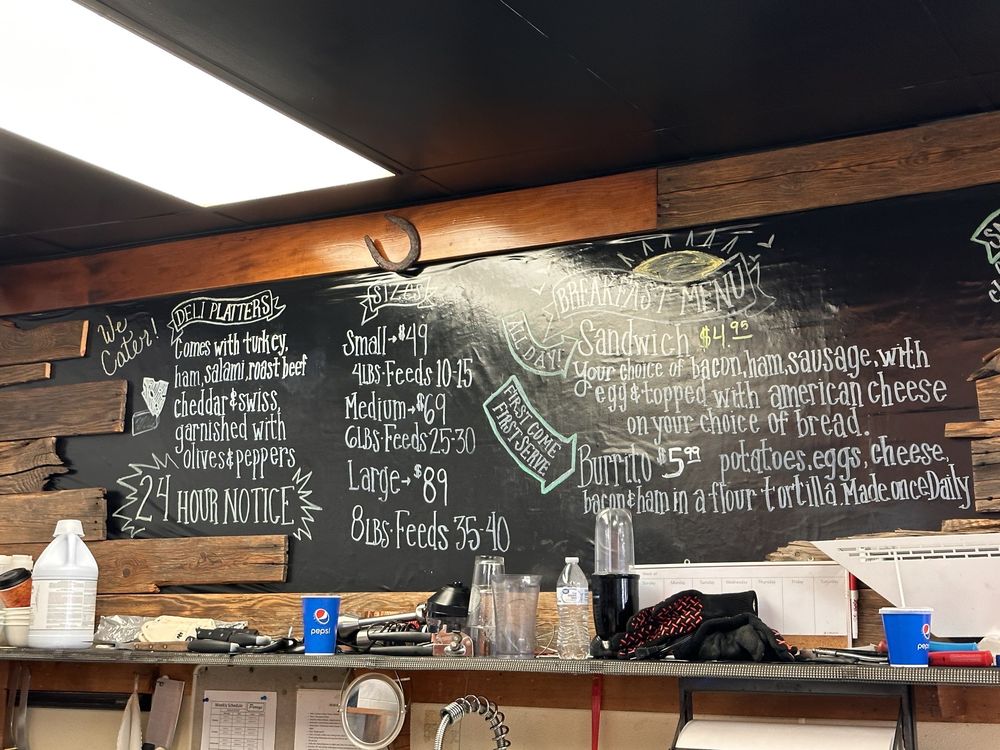 We
Cater!
DELI PLATTERS
Comes with turkey,
ham, salami, roast beef
cheddar & swiss,
garnished with
olives & peppers
24 HOUR NOTICE
SIZES
Small→$49
4LBS-Feeds 10-15
Medium→$69
6LBS-Feeds 25-30
Large→$89
8LBS-Feeds 35-40
BREAKFAST MENU
ALL DAY!
Sandwich $4.95
Your choice of bacon, ham, sausage, with
egg & topped with american cheese
on your choice of bread.
FIRST COME
FIRST SERVE
Burrito $5.99 potatoes, eggs, cheese,
bacon & ham in a flour tortilla. Made once Daily
pepsi
pepsi
Monday Tuesday Wednesday Thursday Friday Saturday
Weekly Schedule